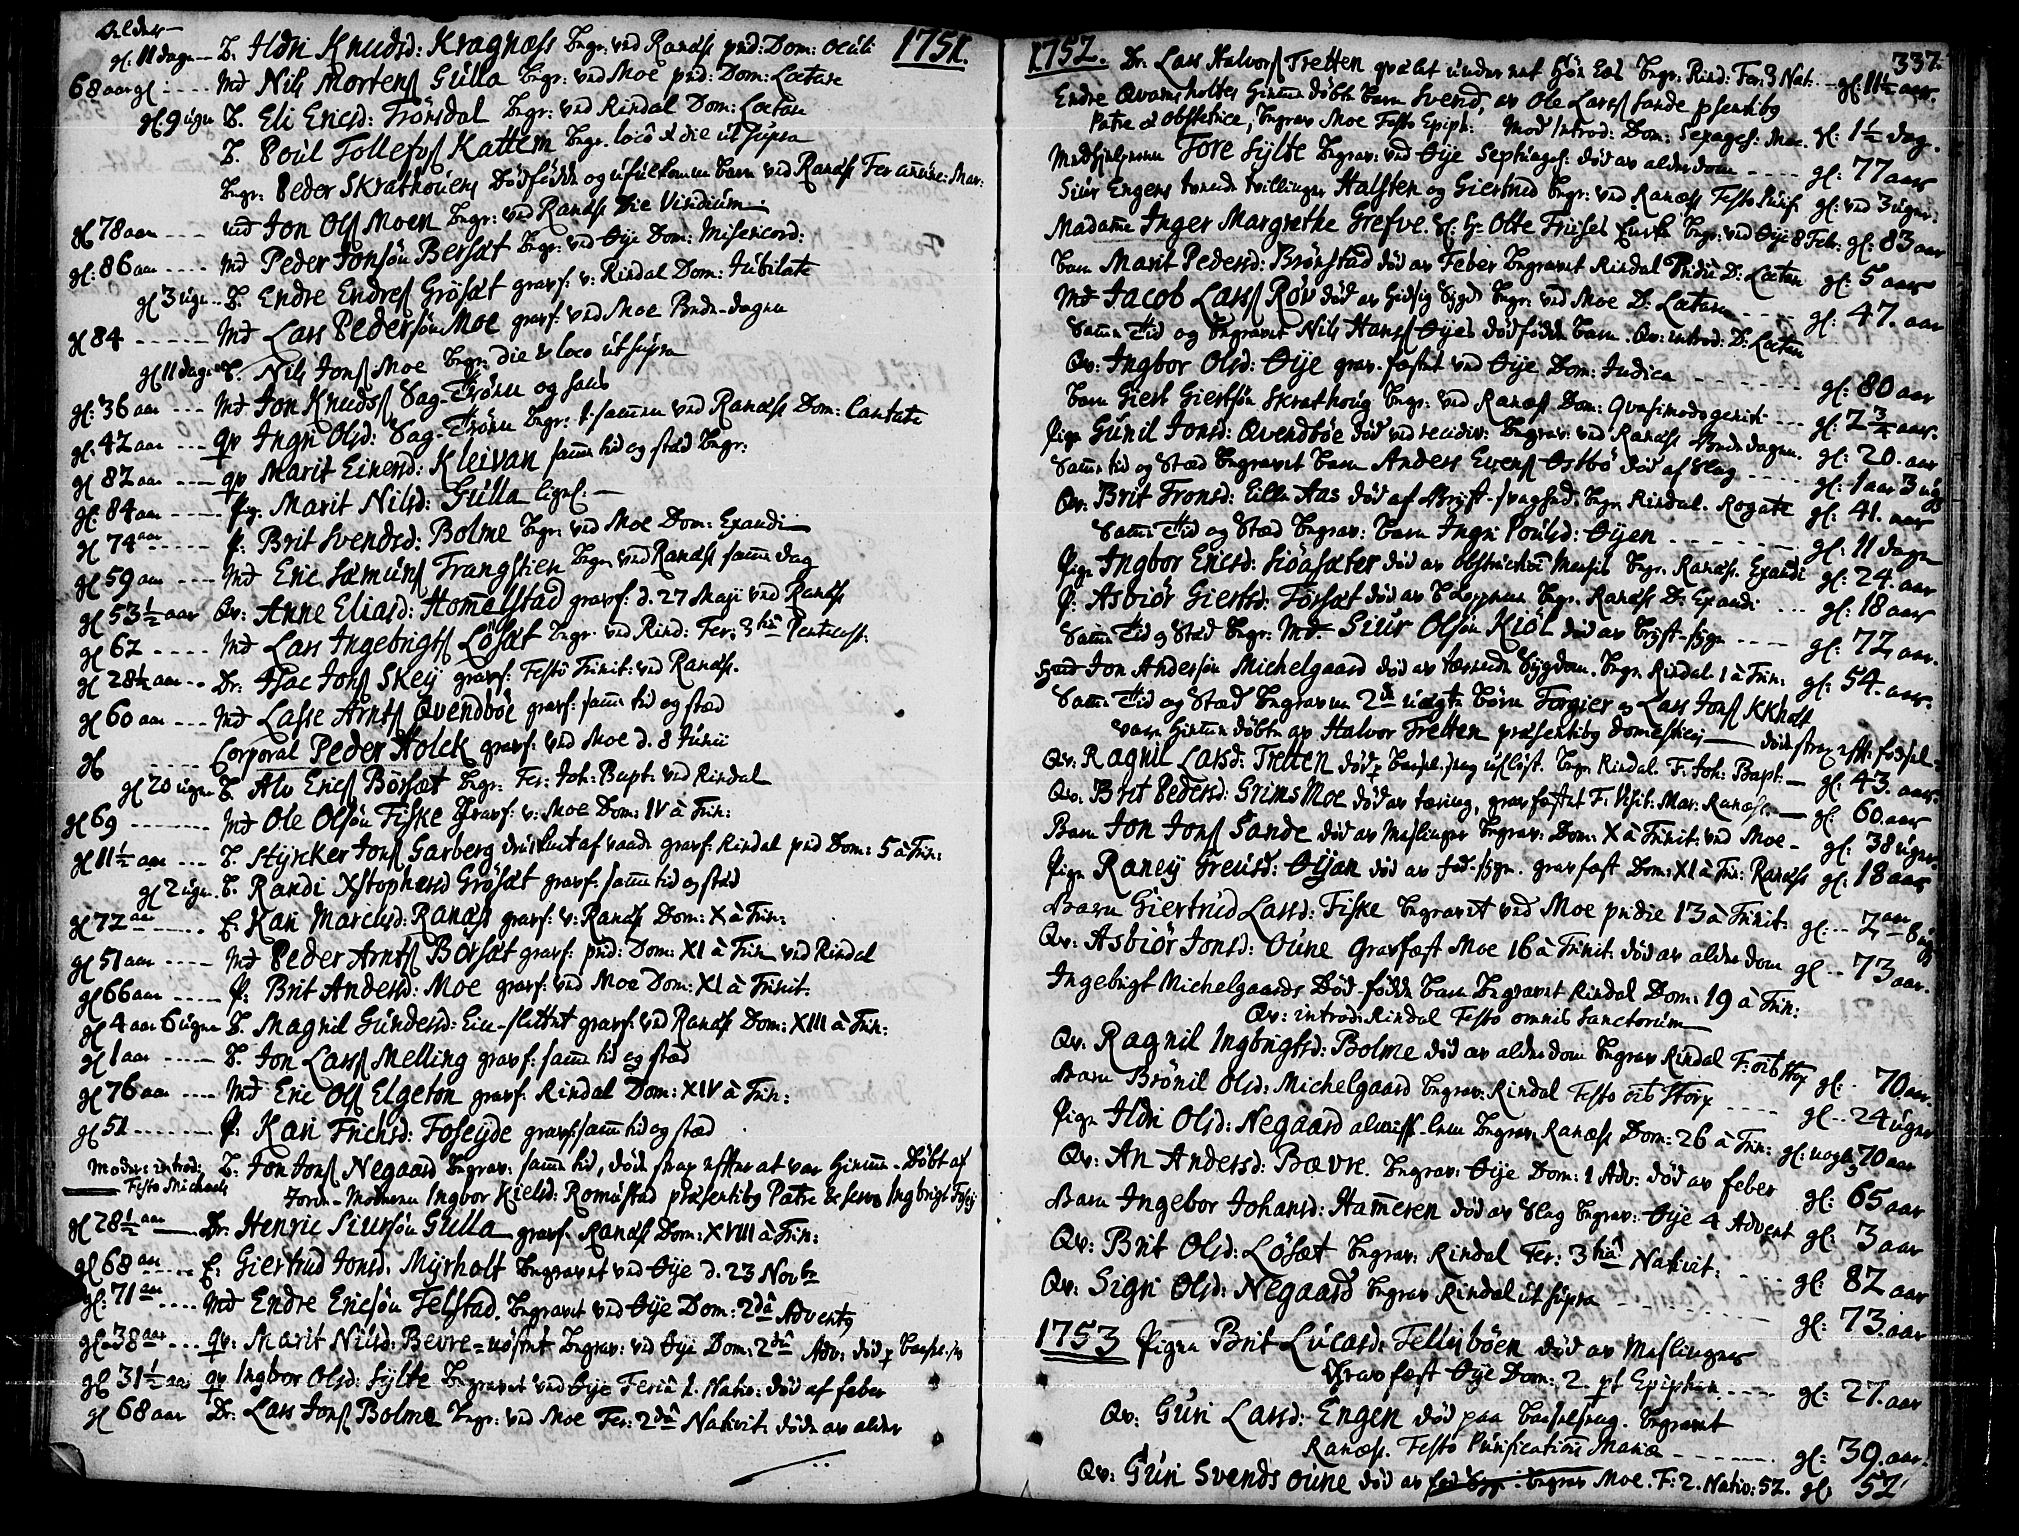 Alder
gl: 11 dage -- B. Ildri Knudsd: Kragnæss begr: ved Ranæss prid: Dom: Oculi 1751.
68 aar gl ---- Md Nils Mortens Gulla begr: ved Moe prid: Dom: Lætare
gl. 9 ugr B. Eli Ericsd: Trønsdal begr: ved Rindal Dom: Lætare
B. Poul Tollefss Kattem begr. loco & die ut supra
begr: Peder Skrathouens Dødfødde og ufulkomne barn ved Ranæss Fer annunc: Mar:
gl 78 aar ---- Jon Ols Moen begr: ved Ranæss Die Viridium.
gl: 86 aar ---- Md Peder Jonsøn Bersæt begr: ved Øye Dom: Misericord:
gl 3 ugr -- B. Endre Endress Grøsæt gravf: v: Rindal Dom: Jubilate
gl 84 ----- Md Lars Pedersøn Moe gravf. ved Moe Bede-dagen
gl 11 dage B. Nils Jons Moe begr: die & loco ut supra
gl: 36 aar --- Md Jon Knuds Sag-Trøen og hans
gl: 42 aar --- qv Ingri Olsd: Sag-Trøen begr: tilsamen ved Ranæss Dom: Cantate
gl 82 aar --- qv Marit Einersd: Kleivan samme tid og stæd begr:
gl: 84 aar ---- P: Marit Nilsd: Gulla ligel: —
gl 74 aar ----- P: Brit Svendsd: Bolme begr: ved Moe Dom: Exaudi
gl 59 aar --- Md Eric Sæmuns Trangstien begr. ved Ranæss samme dag
gl 53 ½ aar Qv: Anne Eliasd: Homelstad gravf: d. 27 Maji ved Ranæss
gl 62 ---- Md Lars Ingebrigts Løsæt begr. ved Rind: Fer: 3tia Pentecost:
gl 28½ aar -- Dr: Isac Jons Skey gravf: Festo Trinit: ved Ranæss.
gl 60 aar --- Md Lasse Arnts Qvendbøe gravf: samme tid og stæd
gl ---- Corporal Peder Holck gravf: ved Moe d. 8 Junii
gl 20 ugr B. Alv Erics Børsæt begr: Fer: Joh: Bapt: ved Rindal
gl 69 ------- Md Ole Olsøn Fiske Gravf: v: Moe Dom: IV à Trin:
gl 11½ aar --- B. Styrcker Jons Garberg gravf: Rindal prid Dom: 5 à Trin:
gl 2 ugr. B. Randi Xstophersd Grøsæt gravf: samme tid og stæd
gl 72 aar ------ E. Kari Marcusd: Ranæss gravf: v: Ranæss Dom: X à Trin:
gl 51 aar ---- Md Peder Arnts Borsæt gravf: prid: Dom: XI à Trin ved Rindal
gl 66 aar ----- P: Brit Andersd: Moe gravf: ved Moe Dom: XI à Trinit:
gl 4 aar 6 ugr B. Magnil Gundersd: gravf: ved Ranæss Dom: XIII à Trin:
gl 1 aar ----- B. Jon Lars Melling gravf: samme tid og stæd
gl 76 aar ---- Md Eric Ols Elgeton gravf: Rindal Dom: XIV à Trin:
gl 51 ------- P: Kari Frichsd: Foseyde gravf: samme tid og stæd
Moder: introd: Festo Michaelis B. Jon Jons Negaard begrav: samme tid, døde strax efter at var hjemme-døbt af
Jorde-Moderen Ingbor Kielsd: Romustad præsentibg Patre &
gl 28½ aar —— Dr. Henric Siursøn Gulla gravf. Ranæss Dom: XVIII à Trin:
gl 68 aar ---- E: Giertrud Jonsd: Myrholt begravet ved Øye d. 23 Novbr
gl: 71 aar ---- Md Endre Ericsøn Felstad. begravet ved Øye Dom: 2da Advents
gl. 38 aar --- qv: Marit Nilsd: Bevre-nøstet begrav: ved Øye Dom: 2da Adv:
gl 31½ aar qv Ingbor Olsd: Sylte begravet ved Øye Feria 1. Nativ: død af feber
gl 68 aar Dr: Lars Jons Bolme begr: ved Moe Fer: 2da Nativit: døde av alder
337.
1752. Dr. Lars Halvors Tretten begr: Rind: Fer: 3 Nat. -- gl: 11½ aar.
Endre Qvamsholtes hjemme døbte barn Svend, av Ole Larss Sande psentibg
Patre & obstetrice, begrav Moe Festo Epiph: Mod introd: Dom: Sexages: Moe. gl: 1½ dag.
Medhjelperen Tore Sylte begrav: ved Øye Septuages: død av alderdom ---- gl: 77 aar
Siur Engens tvende tvillinger Halsten og Giertrud begr: ved Ranæss Festo Purif. gl: ved 3 uger:
Madame Inger Margrethe Grefve. Hr Otte Friises Enke begr: ved Øye 8 Febr: gl: 83 aar
barn Marit Pedersd: Brønstad død av Feber begravet Rindal Pridie D: Lætare gl: 5 aar
Md Jacob Lars Røv død av begr: ved Moe D: Lætare ---- gl: 47. aar
Samme Tid og begravet Nils Hanss Øyes dødfødde barn. Qv: introd: D: Lætare
Qv: Ingbor Olsd: Øye grav-fæstet ved Øye Dom: Judica ------ gl: 80 aar
barn Giert Giertsøn Skrathoug begr: ved Ranæss Dom: Qvasimodogenit: --- gl: 2¾ aar.
Pigen Gunil Jonsd: Qvendbøe død begrav: ved Ranæss Bede dagen. gl: 20. aar
Samme tid og Stæd begravet barn Anders Evens Østbø død af Slag ---- gl: 1 aar 3 ugr
Qv: Brit Tronsd: Lille Aas død af Bryst-svaghed. begr Rindal. Rogate gl: 41. aar
Samme Tid og Stæd begrav: barn Ingri Poulsd: Øyen ------- gl: 11 dage
Pigen Ingbor Ericsd: Siøasæter død av obstructiõe begr. Ranæss. Exaudi gl: 24. aar
P: Asbiør Giertsd: Førsæt død av begr. Ranæss D: Exaudi --- gl: 18 aar
Samme Tid og Stæd begr: Md. Siur Olsøn Kiøl død av bryst-syge ---- gl: 72 aar.
Jon Andersøn Michelgaard død av tærende Sygdom. begr Rindal 1 à Trin: gl: 54. aar.
Samme Tid og Stæd begraven 2de uægte børn Torgier og Lars Jons KKholt
vare hjemme døbte av Halvor Tretten præsentibg domesticis —— døde strax efter fødsel
Qv: Ragnil Larsd: Tretten død begr. Rindal. F: Joh: Bapt. — gl: 43. aar.
Qv: Brit Pedersd: Grimsmoe død av tæring, gravfæstet F: Visit: Mar: Ranæss — gl: 60. aar
Barn Jon Jons Sande død av Meslinger begrav: Dom: X à Trinit: ved Moe - gl: 38 uger.
Pigen Raney Treusd: Øyan død av gravfæst Dom: XI à Trin: Ranæss gl: 18 aar
Barn Giertrud Larsd: Fiske begravet ved Moe pridie 13 à Trinit: gl: -- 2 aar 8 ugr
Qv: Asbiør Jonsd: Oune Gravfæst Moe 16 à Trinit: død av alderdom gl -- 73 aar.
Ingebrigt Michelgaards Død-fødde barn begravet Rindal Dom: 19 à Trin:
Qv: introd: Rindal Festo omnis Sanctorum
Qv: Ragnil Ingbrigtsd: Bolme død av alderdom begrav Rindal F: gl: - 70 aar.
Barn Brønil Olsd: Michelgaard begrav: Rindal Festo ---- gl -- 24 uger
Pigen Ildri Olsd: Negaard begrav. Ranæss Dom: 26 à Trin: gl: 70 aar
Qv: An Andersd: Bævre. begrav: Øye Dom: 1 Adv: død av feber gl: 65 aar
Barn Ingebor Johansd: Hameren død av Slag begrav: Øye 4 Advent gl: 3 aar
Qv: Brit Olsd: Løsæt begrav: Rindal Fer: 3tia Nativit: ---- gl: 82 aar
Qv: Sigri Olsd: Negaard begrav Rindal ut supra ------- gl: 73. aar
1753 Pigen Brit Lucasd: Fellisbøen død av Meslinger
Gravfæst Øye Dom: 2 pt Epiphan ---- gl: 27. aar
Qv: Guri Larsd: Engen død paa barselseng. begravet
Ranæss. Festo Purificationis Mariæ ------ gl: 39. aar.
Qv: Guri Svends Oune død av begrav Moe. F: 2. Nativ: 52. gl: 52